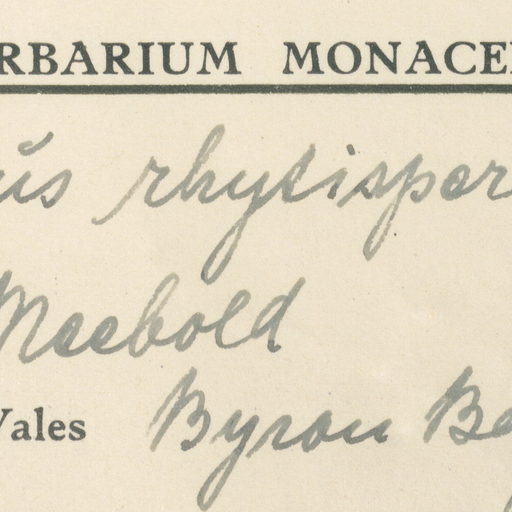 RBARIUM MONACE
us rhytisper
Meebold
Wales Byron Ba